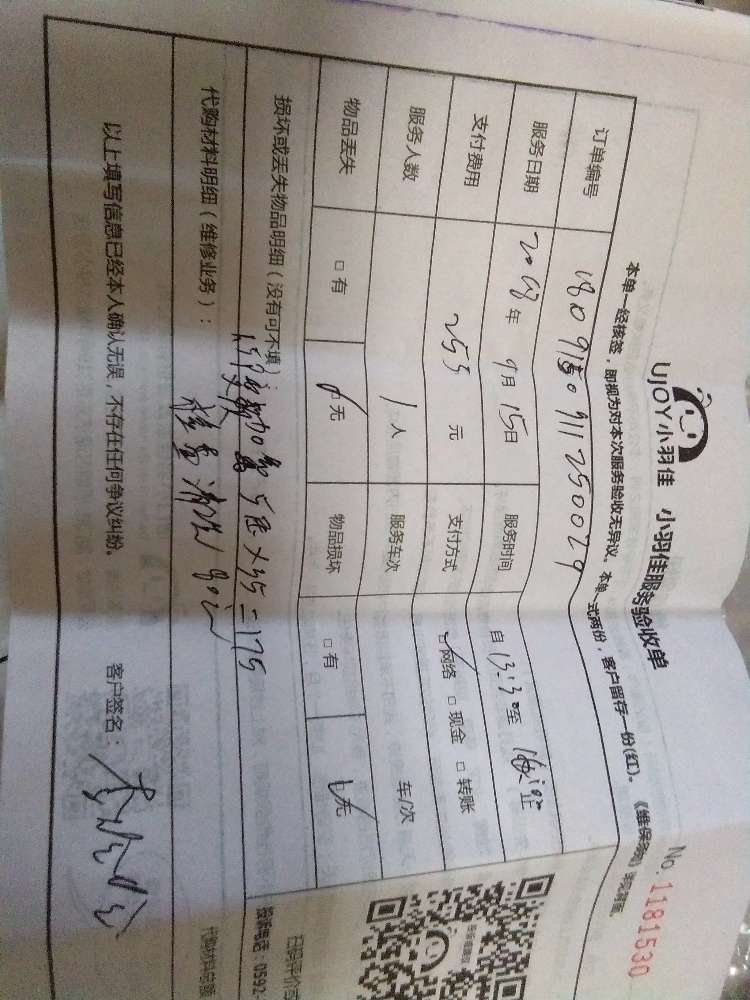 UJOY小羽佳 小羽佳服务验收单
No. 1181530
本单一经核签，即视为对本次服务验收无异议。本单一式两份，客户留存一份(红)。
订单编号 1809150911250029
服务日期 2018年9月15日 服务时间 自13:30至
支付费用 253元 支付方式 网络 □现金 □转账
服务人数 1人 服务车次 车/次
物品丢失 □有 无 物品损坏 □有 无
损坏或丢失物品明细（没有可不填）：
x35=175
代购材料明细（维修业务）：
以上填写信息已经本人确认无误，不存在任何争议纠纷。 客户签名：
扫码评价
电话：0592-
代购材料总额